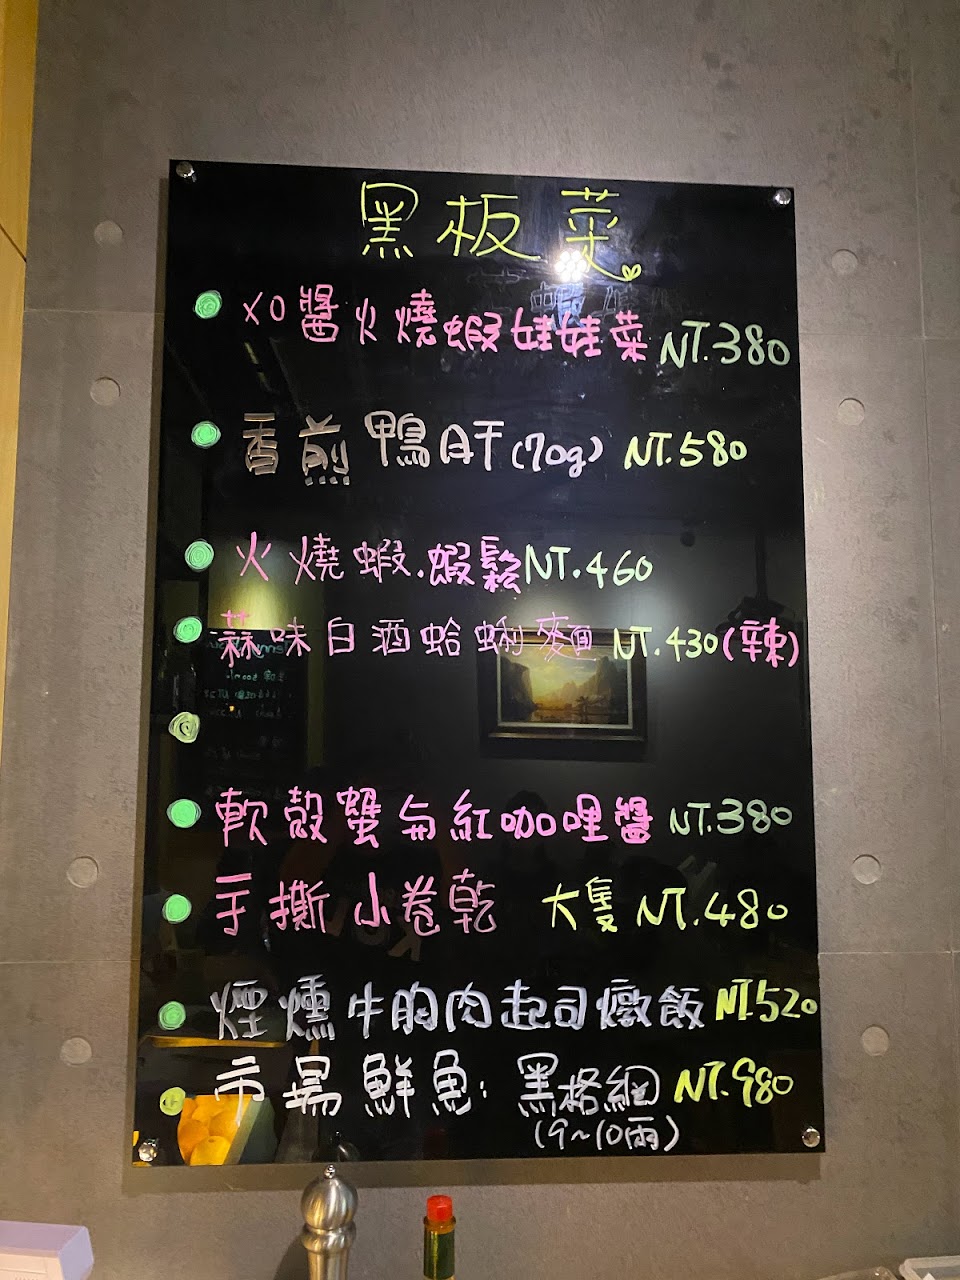 黑板菜
XO醬火燒蝦娃娃菜 NT.380
香煎鴨肝(70g) NT.580
火燒蝦.蝦鬆 NT.460
蒜味白酒蛤蜊麵 NT.430(辣)
軟殼蟹与紅咖哩醬 NT.380
手撕小卷乾 大隻 NT.480
煙燻牛胸肉起司燉飯 NT.520
市場鮮魚: 黑格網 NT.980
(9~10兩)